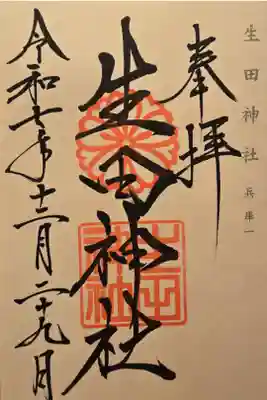 生田神社 兵庫一
奉拝
生田神社
令和七年十二月二十九日
生田神社